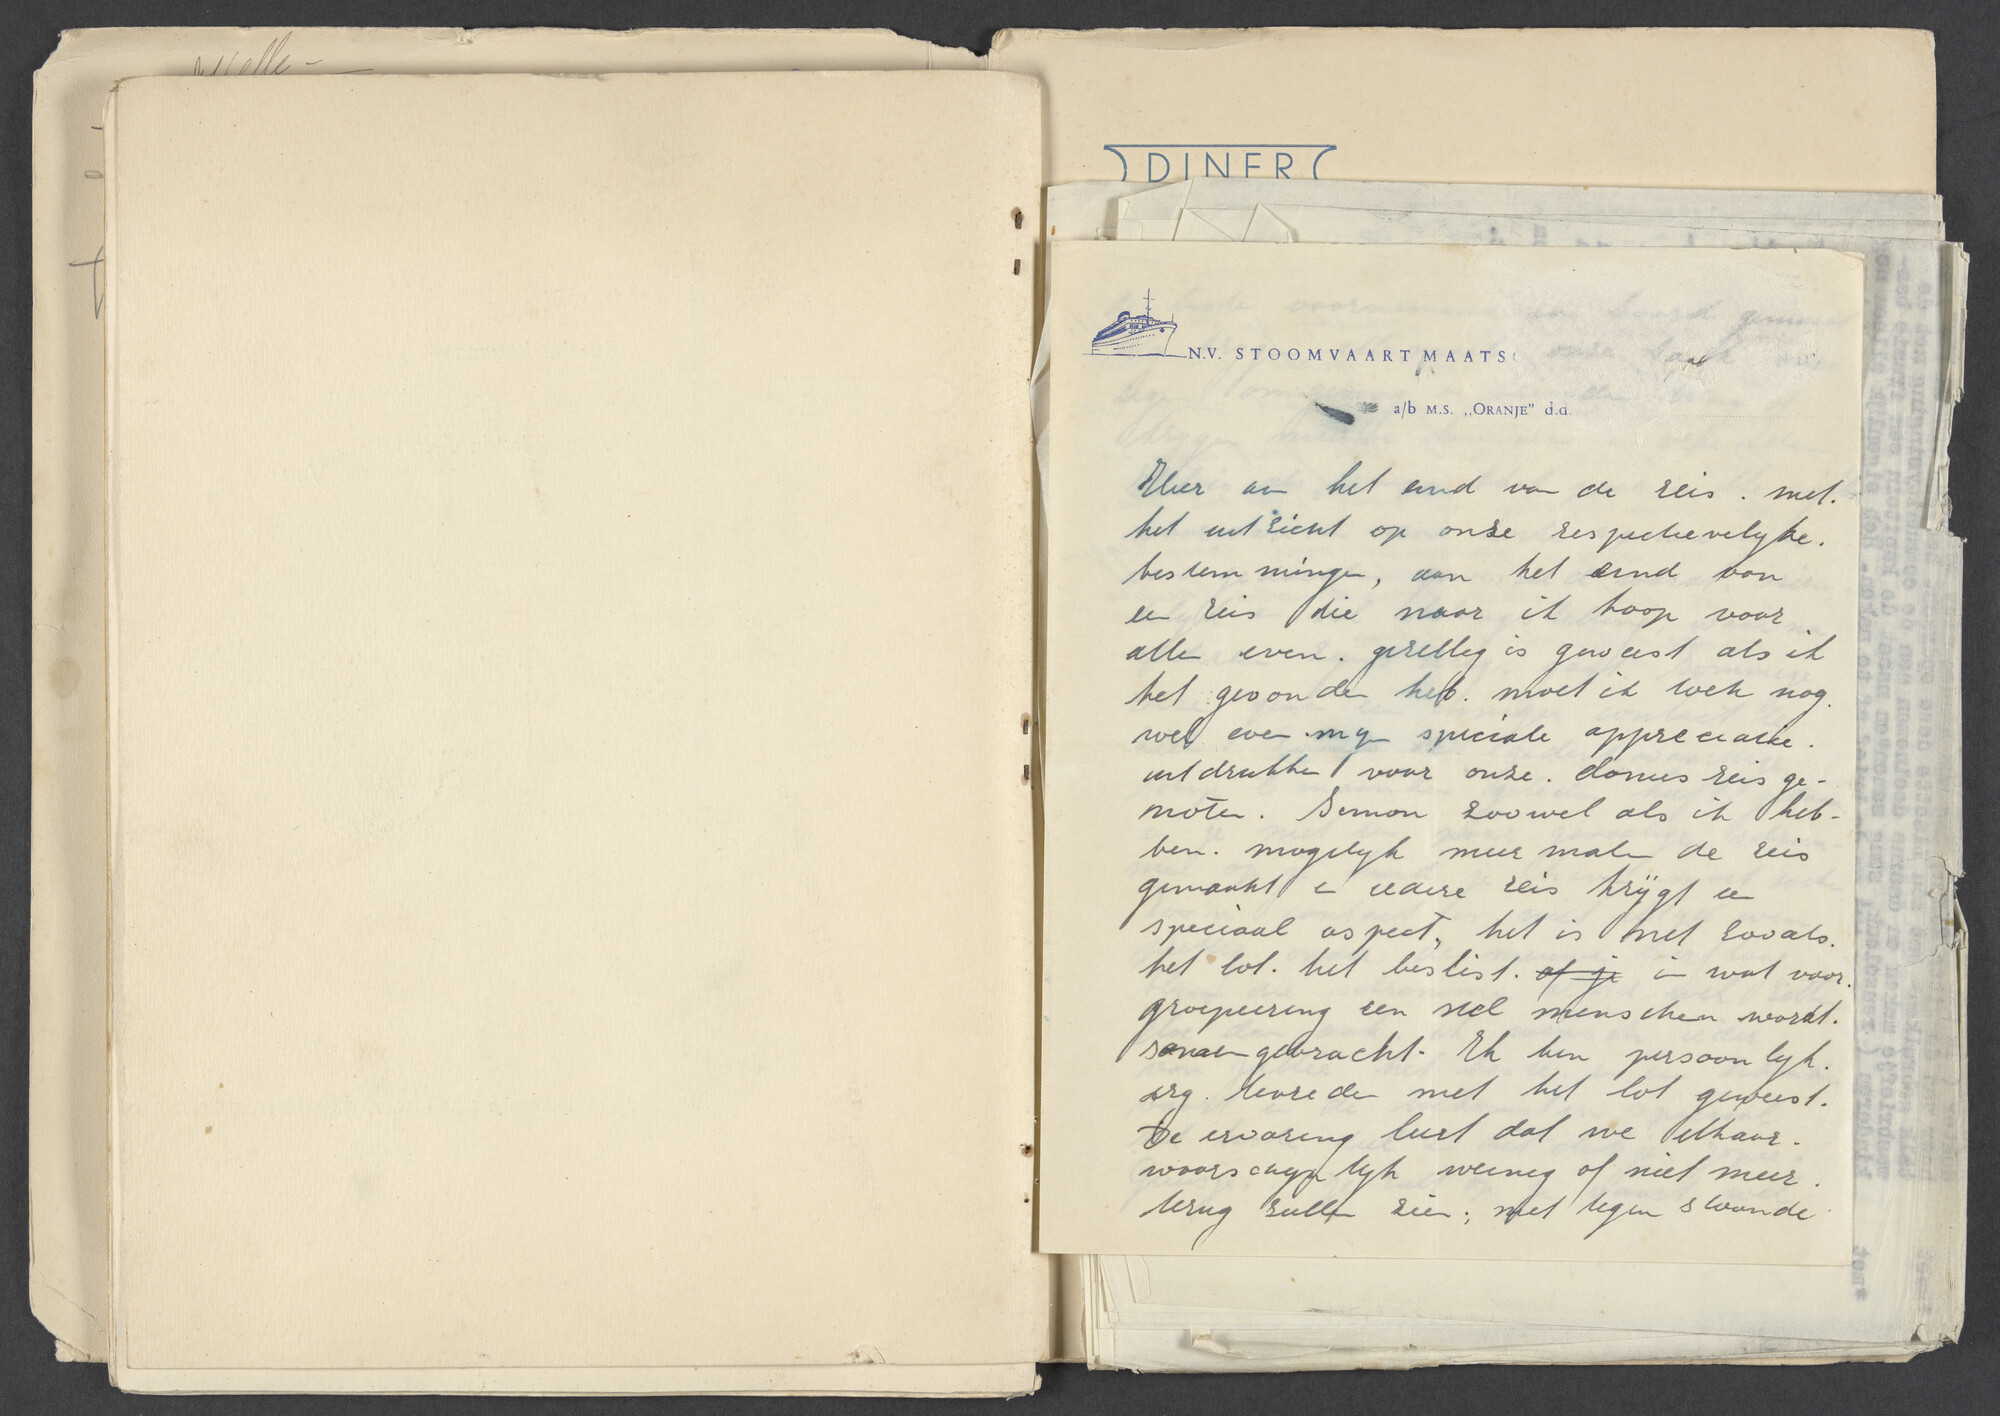 DINER
N.V. STOOMVAART MAATSC
a/b M.S. „ORANJE" d.d.
Hier aan het eind van de reis. met.
het uitzicht op onze respectievelijke.
bestemmingen, aan het eind van
een reis die naar ik hoop voor
allen even. gezellig is geweest als ik
het gevonden heb. moet ik toch nog.
wel even mijn speciale appreciatie.
uitdrukken voor onze. dames reisge-
noten. Simon zoowel als ik heb-
ben. mogelijk meermalen de reis
gemaakt en iedere reis krijgt een
speciaal aspect, het is net zooals.
het lot. het beslist. of je in wat voor.
groepeering een stel menschen wordt.
samengebracht. Ik ben persoonlijk.
erg. tevreden met het lot geweest.
De ervaring leert dat we elkaar.
waarschijnlijk weinig of niet meer.
terug zullen zien; niet tegenstaande